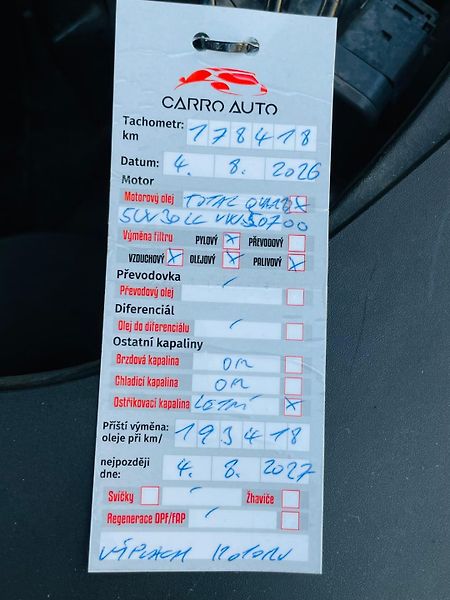 CARRO AUTO
Tachometr: km 178418
Datum: 4. 8. 2026
Motor
Motorový olej TOTAL QUARTZ X
5W30 LL VW 50700
Výměna filtru PYLOVÝ X PŘEVODOVÝ
VZDUCHOVÝ X OLEJOVÝ X PALIVOVÝ X
Převodovka
Převodový olej -
Diferenciál
Olej do diferenciálu -
Ostatní kapaliny
Brzdová kapalina OK
Chladicí kapalina OK
Ostřikovací kapalina LETNÍ X
Příští výměna: oleje při km/ 193418
nejpozději dne: 4. 8. 2027
Svíčky - Žhaviče
Regenerace DPF/FAP -
VÝPLACH MOTORU